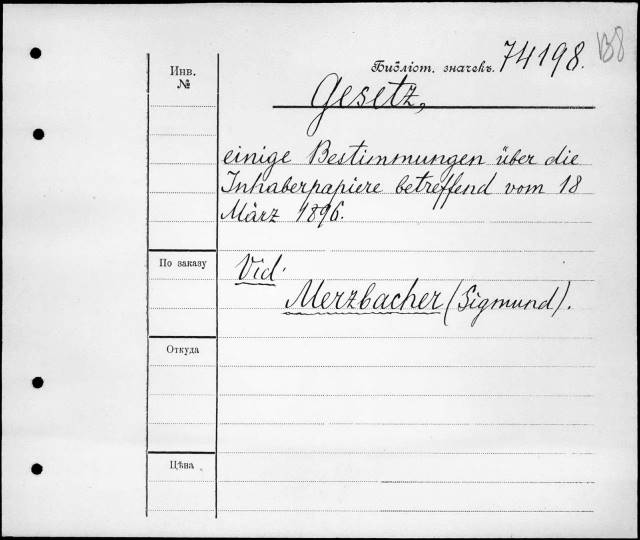 B8
Библіот. значекъ. 74198.
Инв.
№
Gesetz,
einige Bestimmungen über die
Inhaberpapiere betreffend vom 18
März 1896.
По заказу
Vid.
Merzbacher (Sigmund).
Откуда
Цѣна